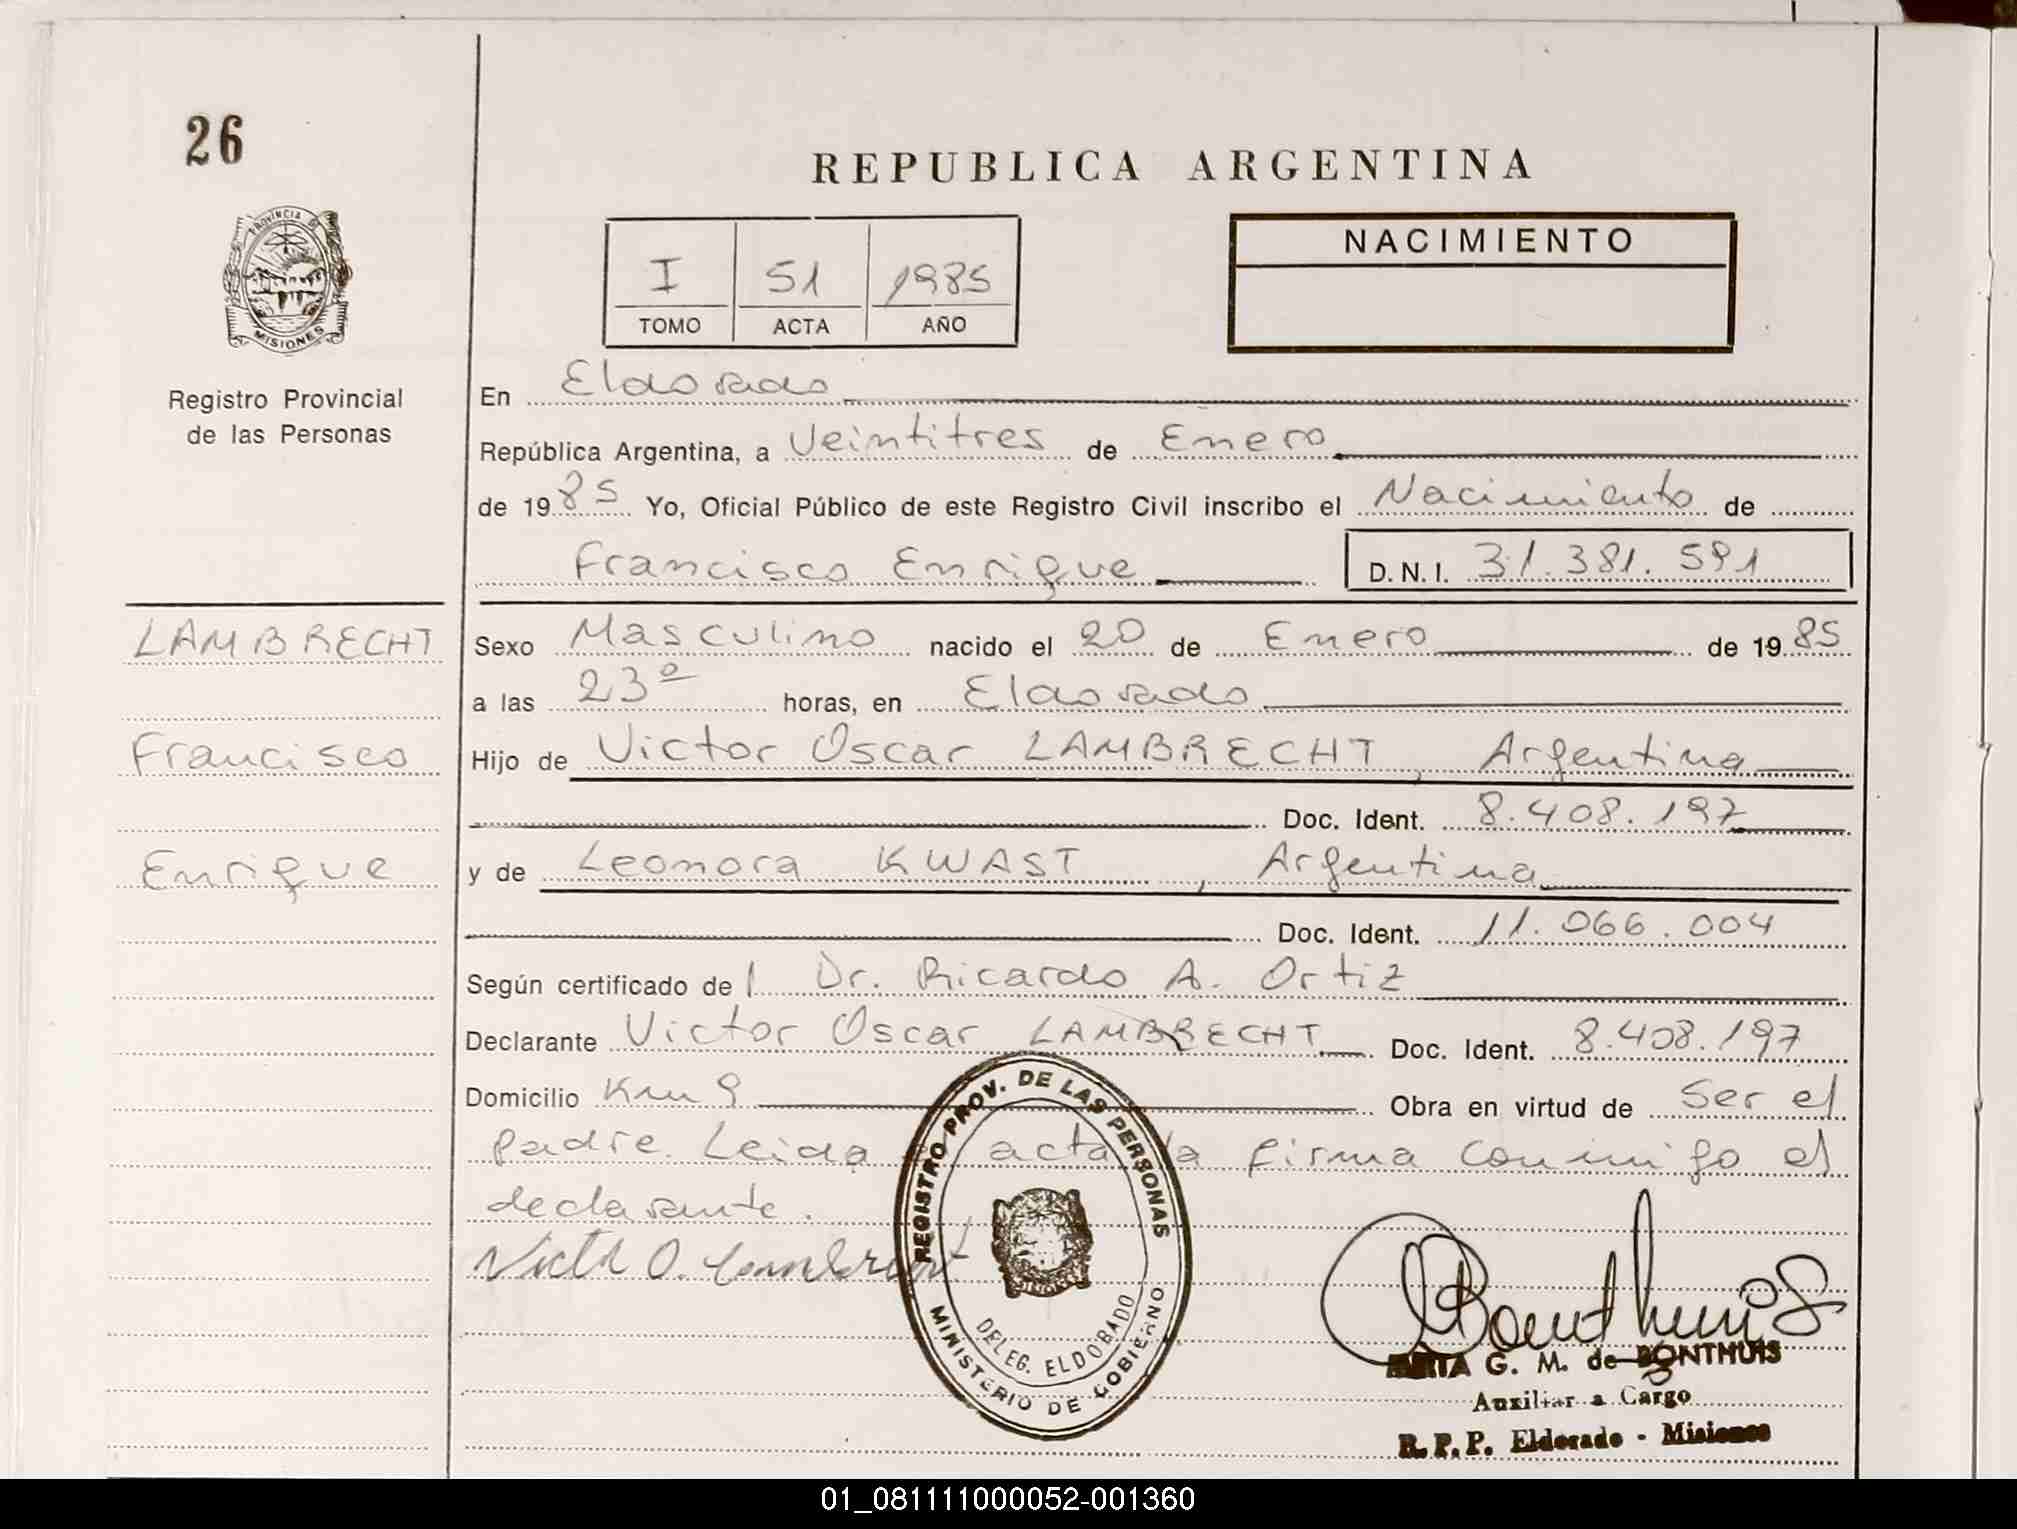 26
REPUBLICA ARGENTINA
PROVINCIA DE
MISIONES
I 51 1985
TOMO ACTA AÑO
NACIMIENTO
Registro Provincial
de las Personas
En Eldorado
República Argentina, a Veintitres de Enero
de 1985 Yo, Oficial Público de este Registro Civil inscribo el Nacimiento de
Francisco Enrique D.N.I. 31.381.591
LAMBRECHT
Francisco
Enrique
Sexo Masculino nacido el 20 de Enero de 1985
a las 23º horas, en Eldorado
Hijo de Victor Oscar LAMBRECHT, Argentina
Doc. Ident. 8.408.197
y de Leonora KWAST, Argentina
Doc. Ident. 11.066.004
Según certificado de l Dr. Ricardo A. Ortiz
Declarante Victor Oscar LAMBRECHT Doc. Ident. 8.408.197
Domicilio Km 9 Obra en virtud de Ser el
padre. Leida acta la firma conmigo el
declarante.
Victor O. Lambrecht
REGISTRO PROV. DE LAS PERSONAS
DELEG. ELDORADO
MINISTERIO DE GOBIERNO
Bonthuis
G. M. de BONTHUIS
Auxiliar a Cargo
R.P.P. Eldorado - Misiones
01_081111000052-001360